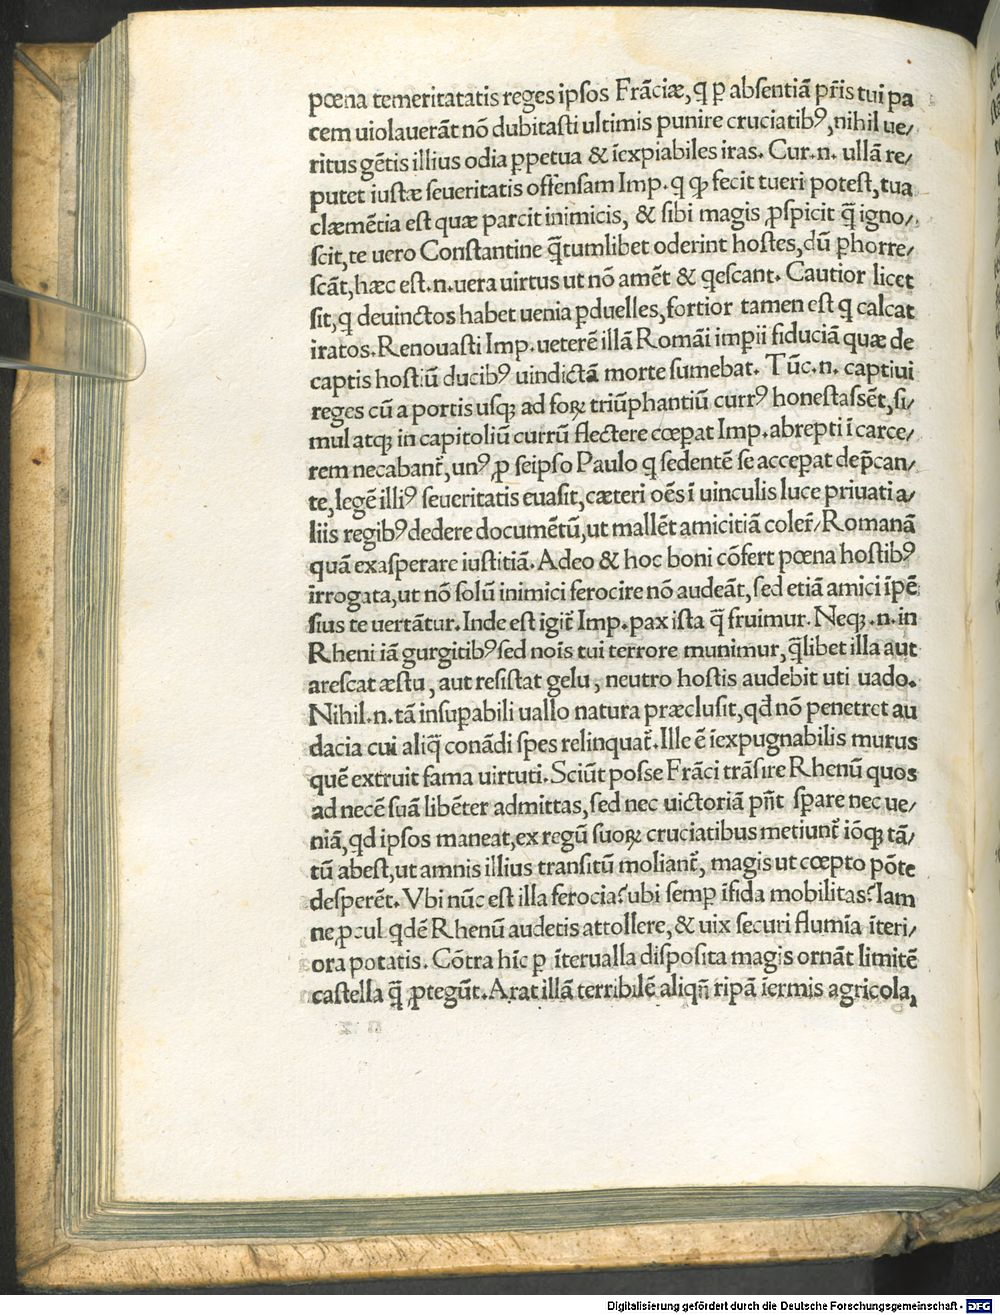 pœna temeritatatis reges ipſos Frãciæ, q̃ p̱ abſentiã pr̃is tui pa
cem uiolauerãt nõ dubitaſti ultimis punire cruciatibꝰ, nihil ue/
ritus gẽtis illius odia p̱petua & ĩexpiabiles iras. Cur .n. ullã re/
putet iuſtæ ſeueritatis offenſam Imp. q ꝙ fecit tueri poteſt, tua
clæmẽtia eſt quæ parcit inimicis, & ſibi magis ꝓſpicit q̃ igno/
ſcit, te uero Conſtantine q̃tumlibet oderint hoſtes, dũ p̱horre/
ſcãt, hæc eſt .n. uera uirtus ut nõ amẽt & qeſcant. Cautior licet
ſit, q deuinctos habet uenia p̱duelles, fortior tamen eſt q calcat
iratos. Renouaſti Imp. ueterẽ illã Romãi imp̱ii fiduciã quæ de
captis hoſtiũ ducibꝰ uindictã morte ſumebat. Tũc .n. captiui
reges cũ a portis uſqꝫ ad foꝝ triũphantiũ currꝰ honeſtaſſẽt, ſi/
mul atqꝫ in capitoliũ currũ flectere cœp̱at Imp. abrepti ĩ carce/
rem necabant̃, unꝰ ꝓ ſeipſo Paulo q ſedentẽ ſe accep̱at dep̃can/
te, legẽ illiꝰ ſeueritatis euaſit, cæteri oẽs ĩ uinculis luce priuati a/
liis regibꝰ dedere documẽtũ, ut mallẽt amicitiã coler̃/ Romanã
quã exaſperare iuſtitiã. Adeo & hoc boni cõfert pœna hoſtibꝰ
irrogata, ut nõ ſolũ inimici ferocire nõ audeãt, ſed etiã amici ĩpẽ
ſius te uertãtur. Inde eſt igit̃ Imp. pax iſta q̃ fruimur. Neqꝫ .n. in
Rheni iã gurgitibꝰ ſed nois tui terrore munimur, q̃libet illa aut
areſcat æſtu, aut reſiſtat gelu, neutro hoſtis audebit uti uado.
Nihil .n. tã inſup̱abili uallo natura præcluſit, qd nõ penetret au
dacia cui aliq̃ conãdi ſpes relinquat̃. Ille ẽ ĩexpugnabilis murus
quẽ extruit fama uirtuti. Sciũt poſſe Frãci trãſire Rhenũ quos
ad necẽ ſuã libẽter admittas, ſed nec uictoriã pñt ſp̱are nec ue/
niã, qd ipſos maneat, ex regũ ſuoꝝ cruciatibus metiunt̃ iõqꝫ tã/
tũ abeſt, ut amnis illius tranſitũ moliant̃, magis ut cœpto põte
deſperẽt. Vbi nũc eſt illa ferocia? ubi ſemp̱ ĩfida mobilitas? Iam
ne ꝓcul qdẽ Rhenũ audetis attollere, & uix ſecuri flumĩa ĩteri/
ora potatis. Cõtra hĩc p̱ ĩterualla diſpoſita magis ornãt limitẽ
caſtella q̃ ꝓtegũt. Arat illã terribilẽ aliqñ ripã ĩermis agricola,
Digitalisierung gefördert durch die Deutsche Forschungsgemeinschaft - DFG